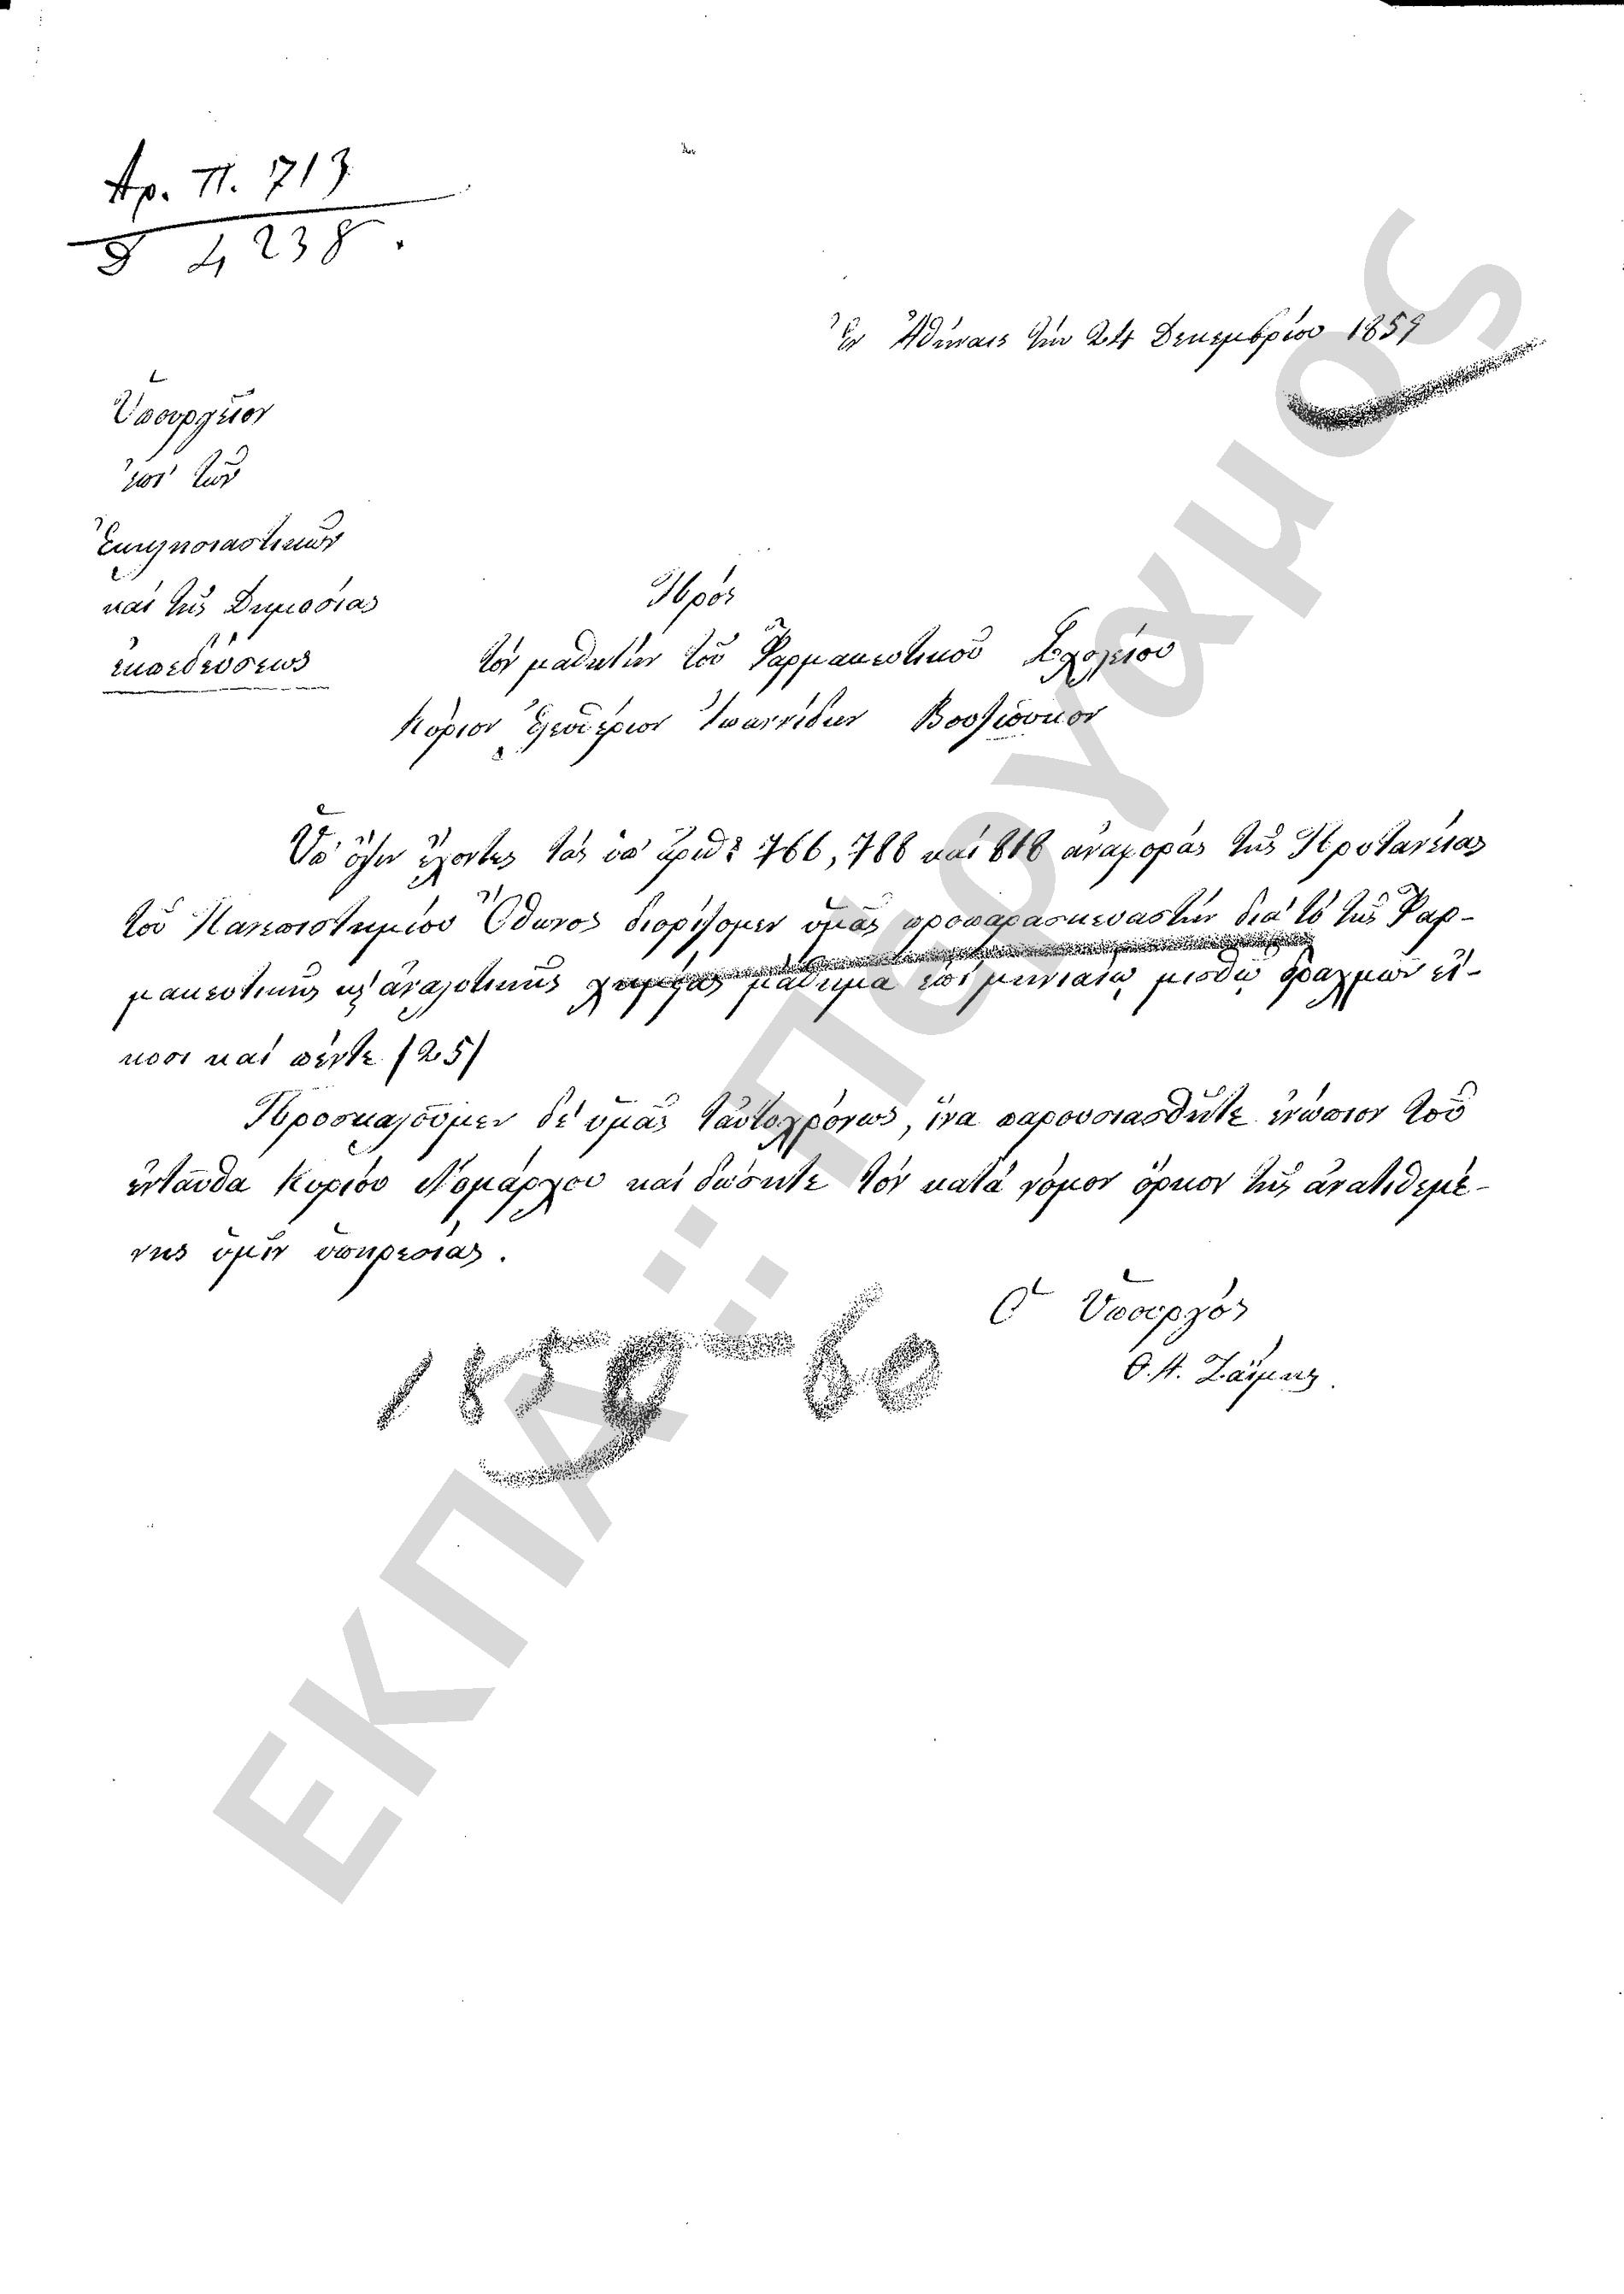 Αρ. Π. 713
4238.
Ἐν Ἀθήναις τὴν 24 Δεκεμβρίου 1859
Ὑπουργεῖον
ἐπὶ τῶν
Ἐκκλησιαστικῶν
καὶ τῆς Δημοσίας
ἐκπεδεύσεως
Πρὸς
τὸν μαθητὴν τοῦ Φαρμακευτικοῦ Σχολείου
Κύριον Ἐλευθέριον Ἰωαννίδην
Ὑπ' ὄψιν ἔχοντες τὰς ὑπ' ἀριθ: 766, 788 καὶ 818 ἀναφορὰς τῆς Πρυτανείας
τοῦ Πανεπιστημίου Ὄθωνος διορίζομεν ὑμᾶς προπαρασκευαστὴν διὰ τὸ τῆς Φαρ-
μακευτικῆς κ ἀναλυτικῆς χημείας μάθημα ἐπὶ μηνιαίῳ μισθῷ δραχμῶν εἴ-
κοσι καὶ πέντε /25/
Προσκαλοῦμεν δὲ ὑμᾶς ταὐτοχρόνως, ἵνα παρουσιασθῆτε ἐνώπιον τοῦ
ἐνταῦθα Κυρίου Νομάρχου καὶ δώσητε τὸν κατὰ νόμον ὅρκον τῆς ἀνατιθεμέ-
νης ὑμῖν ὑπηρεσίας.
Ὁ Ὑπουργὸς
Θ. Α. Ζαΐμης.
1859-60
ΕΚΠΑ: Περγαμος